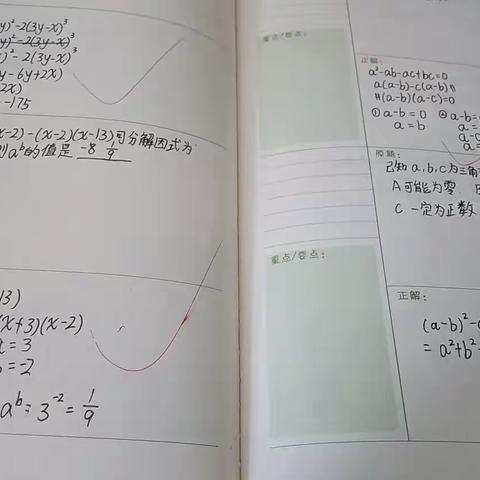 y)²-2(3y-x)³
y)²-2(3y-x)³
)²-2(3y-x)³
y-6y+2x)
2x)
-175
x-2)-(x-2)(x-13)可分解因式为
则aᵇ的值是 -8 1/9
13)
(x+3)(x-2)
a=3
b=-2
aᵇ=3⁻²=1/9
重点/要点:
重点/要点:
正解:
a²-ab-ac+bc=0
a(a-b)-c(a-b)
(a-b)(a-c)=0
①a-b=0 ②a-b=
a=b a=
原题:
已知a,b,c为三角
A可能为零
C一定为正数
正解:
(a-b)²-
=a²+b²-